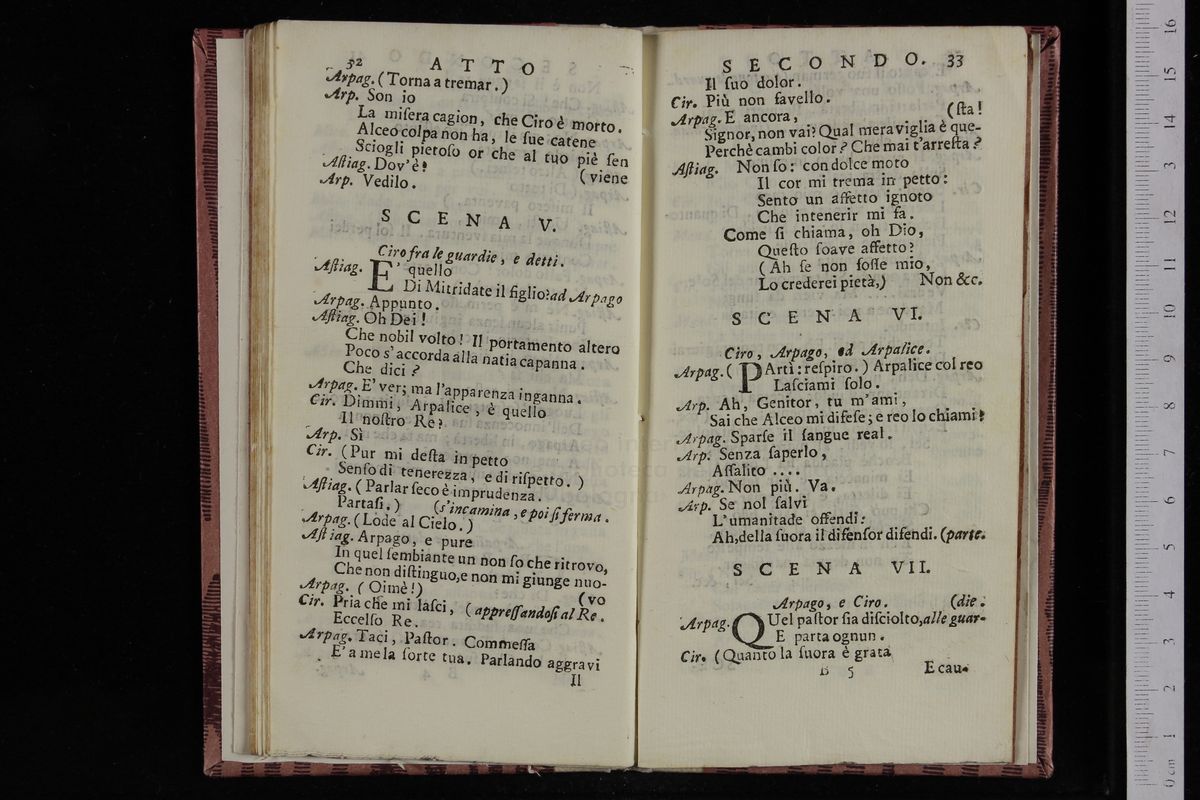 32 ATTO
Arpag. (Torna a tremar.)
Arp. Son io
La miſera cagion, che Ciro è morto.
Alceo colpa non ha, le ſue catene
Sciogli pietoſo or che al tuo piè ſen
Aſtiag. Dov'è? (viene
Arp. Vedilo.
SCENA V.
Ciro fra le guardie, e detti.
Aſtiag. E' quello
Di Mitridate il figlio? ad Arpago
Arpag. Appunto.
Aſtiag. Oh Dei!
Che nobil volto! Il portamento altero
Poco s'accorda alla natia capanna.
Che dici?
Arpag. E' ver; ma l'apparenza inganna.
Cir. Dimmi, Arpalice, è quello
Il noſtro Re?
Arp. Sì
Cir. (Pur mi deſta in petto
Senſo di tenerezza, e di riſpetto.)
Aſtiag. (Parlar ſeco è imprudenza.
Partaſi.) (s'incamina, e poi ſi ferma.
Arpag. (Lode al Cielo.)
Aſtiag. Arpago, e pure
In quel ſembiante un non ſo che ritrovo,
Che non diſtinguo, e non mi giunge nuo-
Arpag. (Oimè!) (vo
Cir. Pria che mi laſci, (appreſſandoſi al Re.
Eccelſo Re.
Arpag. Taci, Paſtor. Commeſſa
E' a me la ſorte tua. Parlando aggravi
Il
SECONDO. 33
Il ſuo dolor.
Cir. Più non favello.
Arpag. E ancora, (ſta!
Signor, non vai? Qual meraviglia è que-
Perchè cambi color? Che mai t'arreſta?
Aſtiag. Non ſo: con dolce moto
Il cor mi trema in petto:
Sento un affetto ignoto
Che intenerir mi fa.
Come ſi chiama, oh Dio,
Queſto ſoave affetto?
(Ah ſe non foſſe mio,
Lo crederei pietà,) Non &c.
SCENA VI.
Ciro, Arpago, ed Arpalice.
Arpag. (PArti: reſpiro.) Arpalice col reo
Laſciami ſolo.
Arp. Ah, Genitor, tu m'ami,
Sai che Alceo mi difeſe; e reo lo chiami?
Arpag. Sparſe il ſangue real.
Arp. Senza ſaperlo,
Aſſalito ....
Arpag. Non più. Va.
Arp. Se nol ſalvi
L'umanitade offendi:
Ah, della ſuora il difenſor difendi. (parte.
SCENA VII.
Arpago, e Ciro. (die.
Arpag. QUel paſtor ſia diſciolto, alle guar-
E parta ognun.
Cir. (Quanto la ſuora è grata
B 5 E cau-